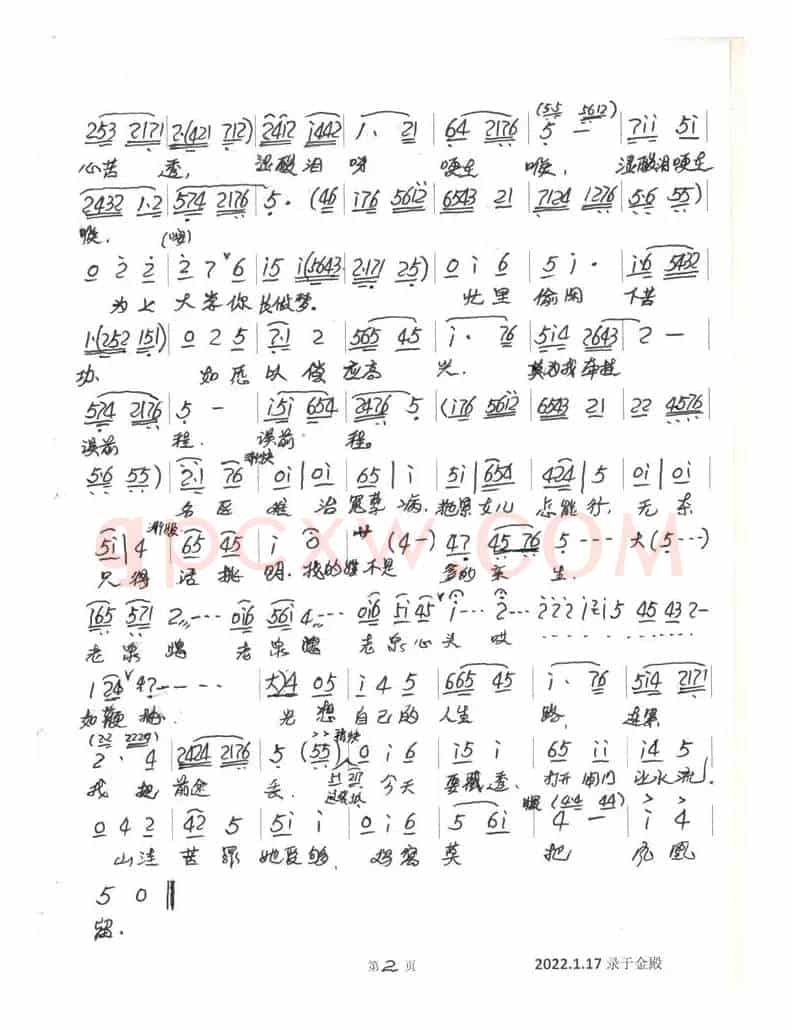 253 2171 | 2·(421 712) | 2412 1442 | 1· 21 | 64 2176 | 5 — | 711 51 |
(55 5612)
心苦 透, 湿酸泪 呀 哽在 喉, 湿酸泪哽在
2432 1·2 | 574 2176 | 5· (46 | 176 5612 | 6543 21 | 7124 1276 | 5·6 55) |
喉. (嗬)
0 2 2 | 2 7 6 | 15 1(5643 | 2·171 25) | 0 1 6 | 5 1· | 1·6 5432 |
为上大学你长做梦. 忙里 偷闲 下苦
1·(252 151) | 0 2 5 | 7·1 2 | 565 45 | 1· 76 | 514 2643 | 2 — |
功. 如愿 以偿 应高 兴. 莫为我牵挂
574 2176 | 5 — | 151 654 | 2476 5 | (176 5612 | 6543 21 | 22 4576 |
误前 程. 误前 程。
渐快
5·6 55) | 2·1 76 | 01 | 01 | 65 | 1 | 51 | 654 | 424 | 5 | 01 | 01 |
名医 难 治 病. 拖累女儿 怎能行. 无奈
渐慢
51 | 4 | 65 45 | 1 0 | サ (4—) | 47 45 76 5 ··· 大(5···)
只得 话挑 明. 我的娃不是 我的亲 生.
165 571 2 ···· 016 561 4 ···· 016 51 45 1 ··· 2 ··· 222 1215 45 43 2—
老泉 老泉 老泉心 头 哎
1 24 47 ····· | 大)4 05 | 1 4 5 | 665 45 | 1· 76 | 514 2171 |
如鞭 抽. 光 想 自己的 人生 路, 连累
(22 2224) 稍快
2· 4 | 2424 2176 | 5 (55) | 0 1 6 | 15 1 | 65 11 | 14 5 |
51 217
我 把 前途 丢. 今天 要 透. 打开闸门 让水流.
慢 (44 44)
0 4 2 | 42 5 | 51 1 | 0 1 6 | 5 61 | 4 — | 1 4 |
山洼 苦罪 她受够, 鸡窝 莫 把 凤凰
5 0 ‖
留.
gpcxw.COM
第2页 2022.1.17 录于金殿